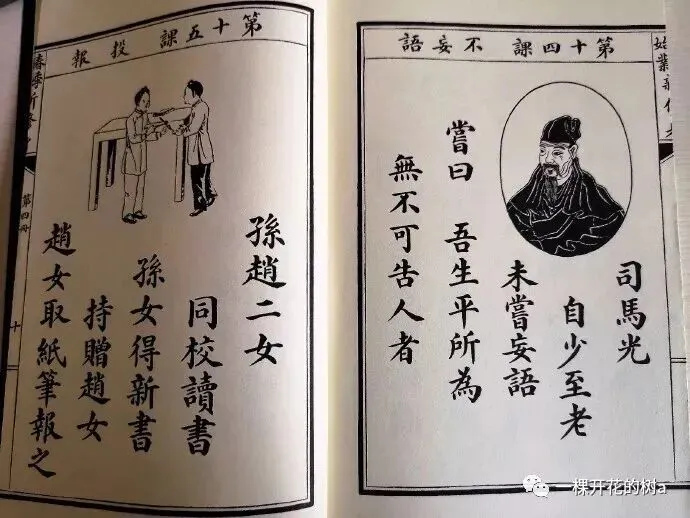 第十四課 不妄語
司馬光
自少至老
未嘗妄語
嘗曰 吾生平所為
無不可告人者
第十五課 投報
孫趙二女
同校讀書
孫女得新書
持贈趙女
趙女取紙筆報之
第四冊
十
一棵开花的树a